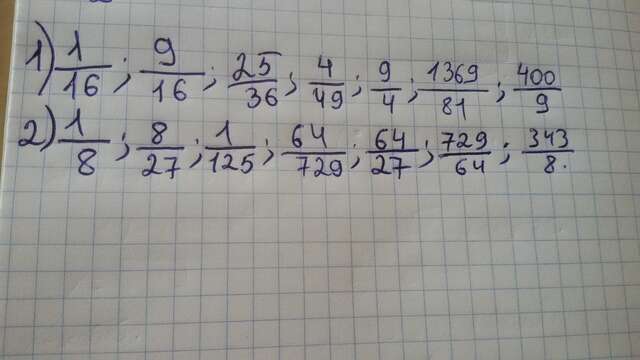 1) 1/16 ; 9/16 ; 25/36 ; 4/49 ; 9/4 ; 1369/81 ; 400/9
2) 1/8 ; 8/27 ; 1/125 ; 64/729 ; 64/27 ; 729/64 ; 343/8.